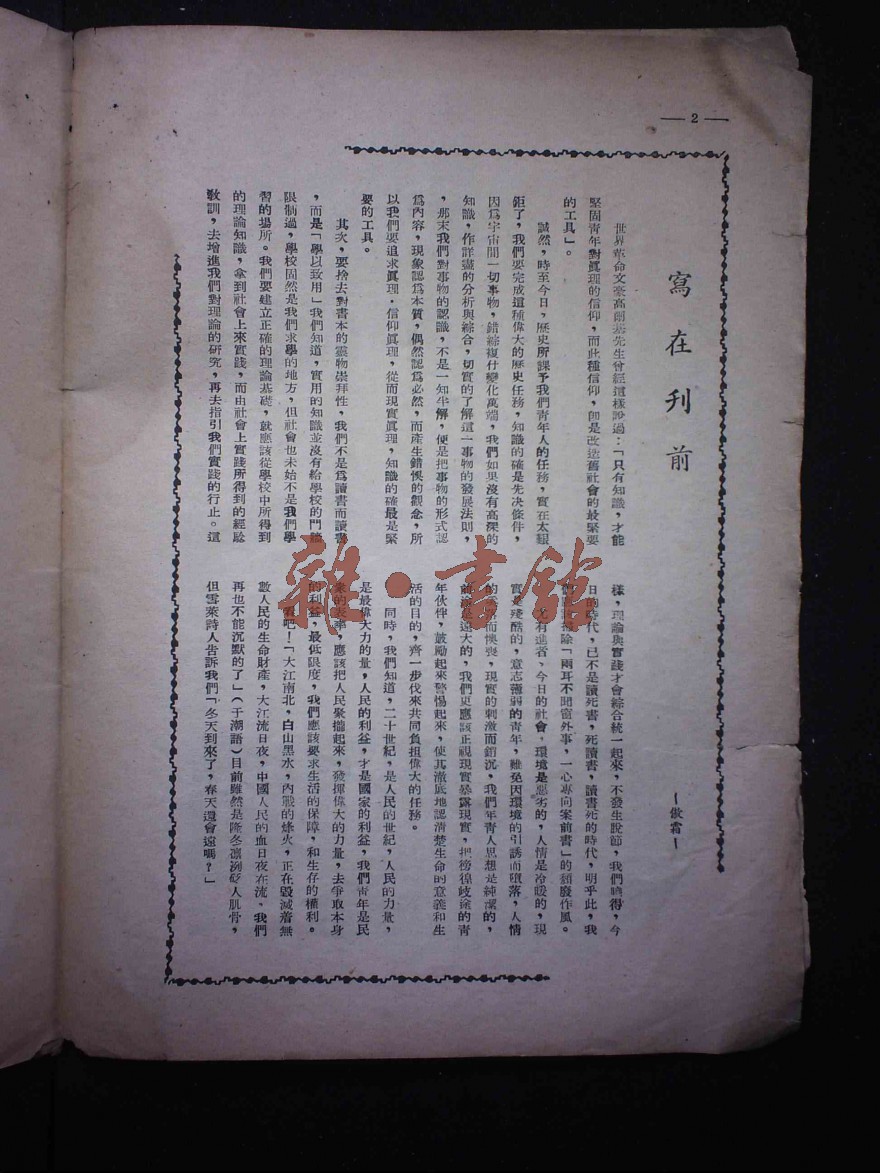 — 2 —
寫在刊前
—傲霜—
世界革命文豪高爾基先生曾經這樣說過：「只有知識，才能
堅固青年對眞理的信仰，而此種信仰，卽是改造舊社會的最緊要
的工具」。
誠然，時至今日，歷史所課予我們青年人的任務，實在太艱
鉅了，我們要完成這種偉大的歷史任務，知識的確是先决條件，
因爲宇宙間一切事物，錯綜複什變化萬端，我們如果沒有高深的
知識，作詳盡的分析與綜合，切實的了解這一事物的發展法則，
，那末我們對事物的認識，不是一知半解，便是把事物的形式認
爲內容，現象認爲本質，偶然認爲必然，而產生錯悞的觀念，所
以我們要追求眞理．信仰眞理，從而現實眞理，知識的確最是緊
要的工具。
其次，要捨去對書本的靈物崇拜性，我們不是爲讀書而讀書
，而是「學以致用」我們知道，實用的知識並沒有給學校的門牆
限制過，學校固然是我們求學的地方，但社會也未始不是我們學
習的場所。我們要建立正確的理論基礎，就應該從學校中所得到
的理論知識，拿到社會上來實踐，而由社會上實踐所得到的經驗
敎訓，去增進我們對理論的研究，再去指引我們實踐的行止。這
樣，理論與實踐才會綜合統一起來，不發生脫節，我們曉得，今
日的時代，已不是讀死書，死讀書，讀書死的時代，明乎此，我
們應該掃除「兩耳不聞窗外事，一心專向案前書」的頹廢作風。
尤有進者、今日的社會，環境是惡劣的，人情是冷暖的，現
實是殘酷的，意志薄弱的青年，難免因環境的引誘而墮落，人情
的冷酷而懊喪，現實的刺激而銷沉，我們年青人思想是純潔的，
前途是遠大的，我們更應該正視現實暴露現實，把徬徨歧途的青
年伙伴，鼓勵起來警惕起來，使其澈底地認清楚生命的意義和生
活的目的，齊一步伐來共同負担偉大的任務。
同時，我們知道，二十世紀，是人民的世紀，人民的力量，
是最偉大力的量，人民的利益，才是國家的利益，我們青年是民
衆的表率，應該把人民聚攏起來，發揮偉大的力量，去爭取本身
的利益，最低限度，我們應該要求生活的保障，和生存的權利。
看吧！「大江南北，白山黑水，內戰的烽火，正在毀滅着無
數人民的生命財產，大江流日夜，中國人民的血日夜在流，我們
再也不能沉默的了」（于潮語）目前雖然是隆冬凛冽砭人肌骨，
但雪萊詩人告訴我們「冬天到來了，春天還會遠嗎？」
雜·書館